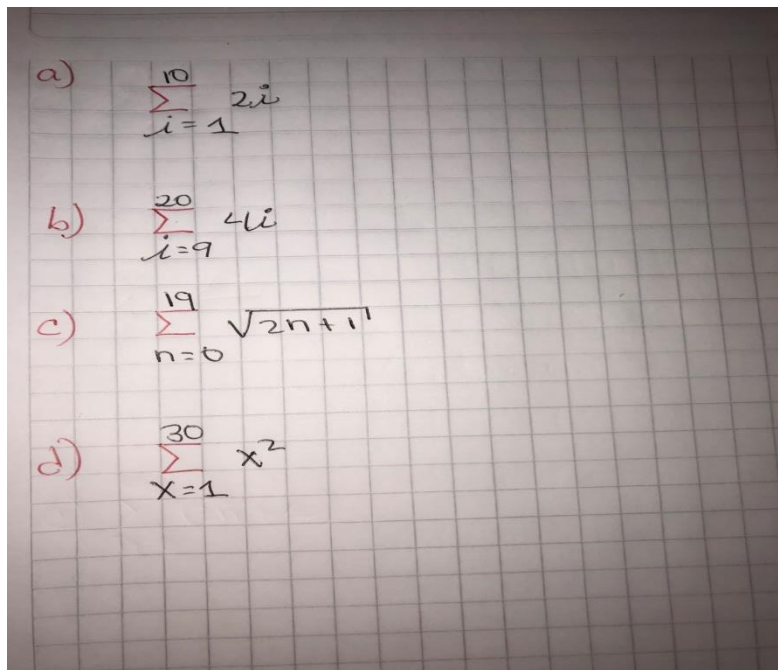 a) \sum_{i=1}^{10} 2i
b) \sum_{i=9}^{20} 4i
c) \sum_{n=0}^{19} \sqrt{2n+1}
d) \sum_{x=1}^{30} x^2